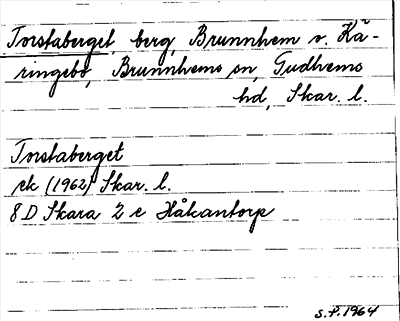 Torstaberget, berg, Brunnhem o. Kä-
ringebo, Brunnhems sn, Gudhems
hd, Skar. l.
Torstaberget
ek (1962) Skar. l.
8D Skara 2 e Håkantorp
S.P. 1964